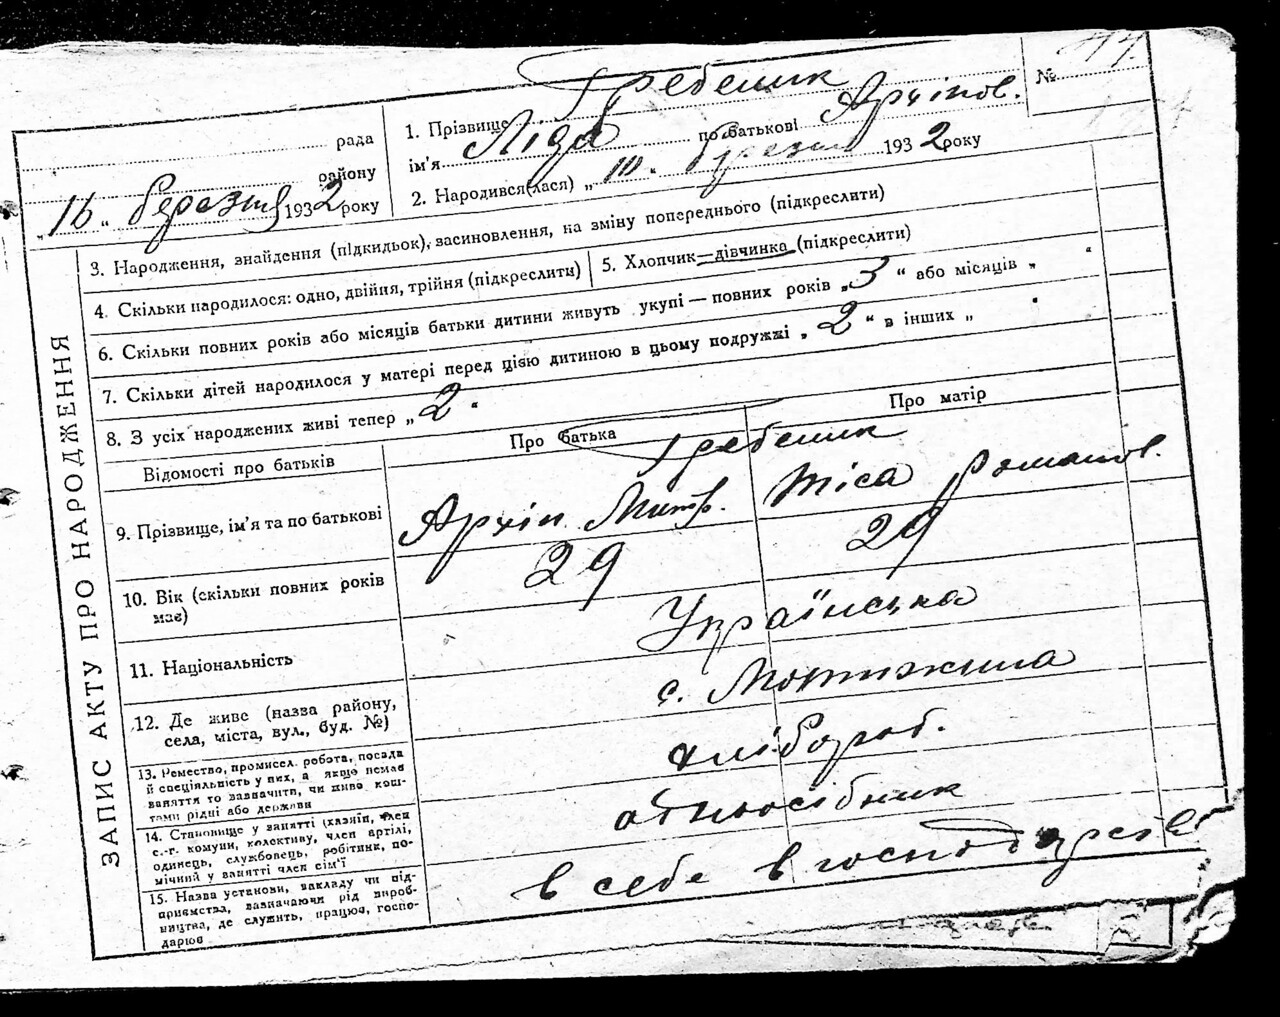 рада
району
„16 „ березня 1932 року
1. Прізвище Гребеник
ім'я Ліда по батькові Архіпов.
2. Народився(лася) „ 10 „ березня 1932 року
№
ЗАПИС АКТУ ПРО НАРОДЖЕННЯ
3. Народження, знайдення (підкидьок), засиновлення, на зміну попереднього (підкреслити)
4. Скільки народилося: одно, двійня, трійня (підкреслити)
5. Хлопчик—дівчинка (підкреслити)
6. Скільки повних років або місяців батьки дитини живуть укупі—повних років „3 “ або місяців „ “
7. Скільки дітей народилося у матері перед цією дитиною в цьому подружжі „ 2 “ в інших „ “
8. З усіх народжених живі тепер „ 2 “
Відомості про батьків
Про батька
Про матір
9. Прізвище, ім'я та по батькові
Гребеник
Архіп Митр.
Романов.
10. Вік (скільки повних років має)
29
29
11. Національність
Українська
12. Де живе (назва району,
села, міста, вул., буд. №)
с. Мотижина
13. Ремество, промисел, робота, посада
й спеціяльність у них, а якщо немає
заняття то зазначити, чи живе кош-
тами рідні або держави
хлібороб.
14. Становище у занятті (хазяїн, член
с.-г. комуни, колективу, член артілі,
одинець, службовець, робітник, по-
мічний у занятті член сім'ї
одноосібник
15. Назва установи, закладу чи під-
приємства, зазначаючи рід вироб-
ництва, де служить, працює, госпо-
дарює
в себе в господарстві